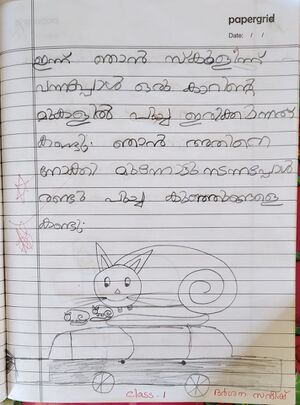 papergrid
Date: / /
ഇന്ന് ഞാൻ സ്കൂളീന്ന്
വന്നപ്പോൾ ഒരു കാറിന്റെ
മുകളിൽ പൂച്ച ഇരിക്കുന്നത്
കണ്ടു. ഞാൻ അതിനെ
നോക്കി മുന്നോട്ടു നടന്നപ്പോൾ
രണ്ടു പൂച്ച കുഞ്ഞുങ്ങളെ
കണ്ടു.
class - 1
ദർശന